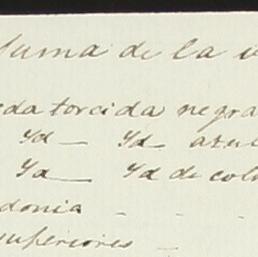 Suma de la
eda torcida negra
Yd — Yd — azul
Ya — Yd de col
donia - -
superiores -